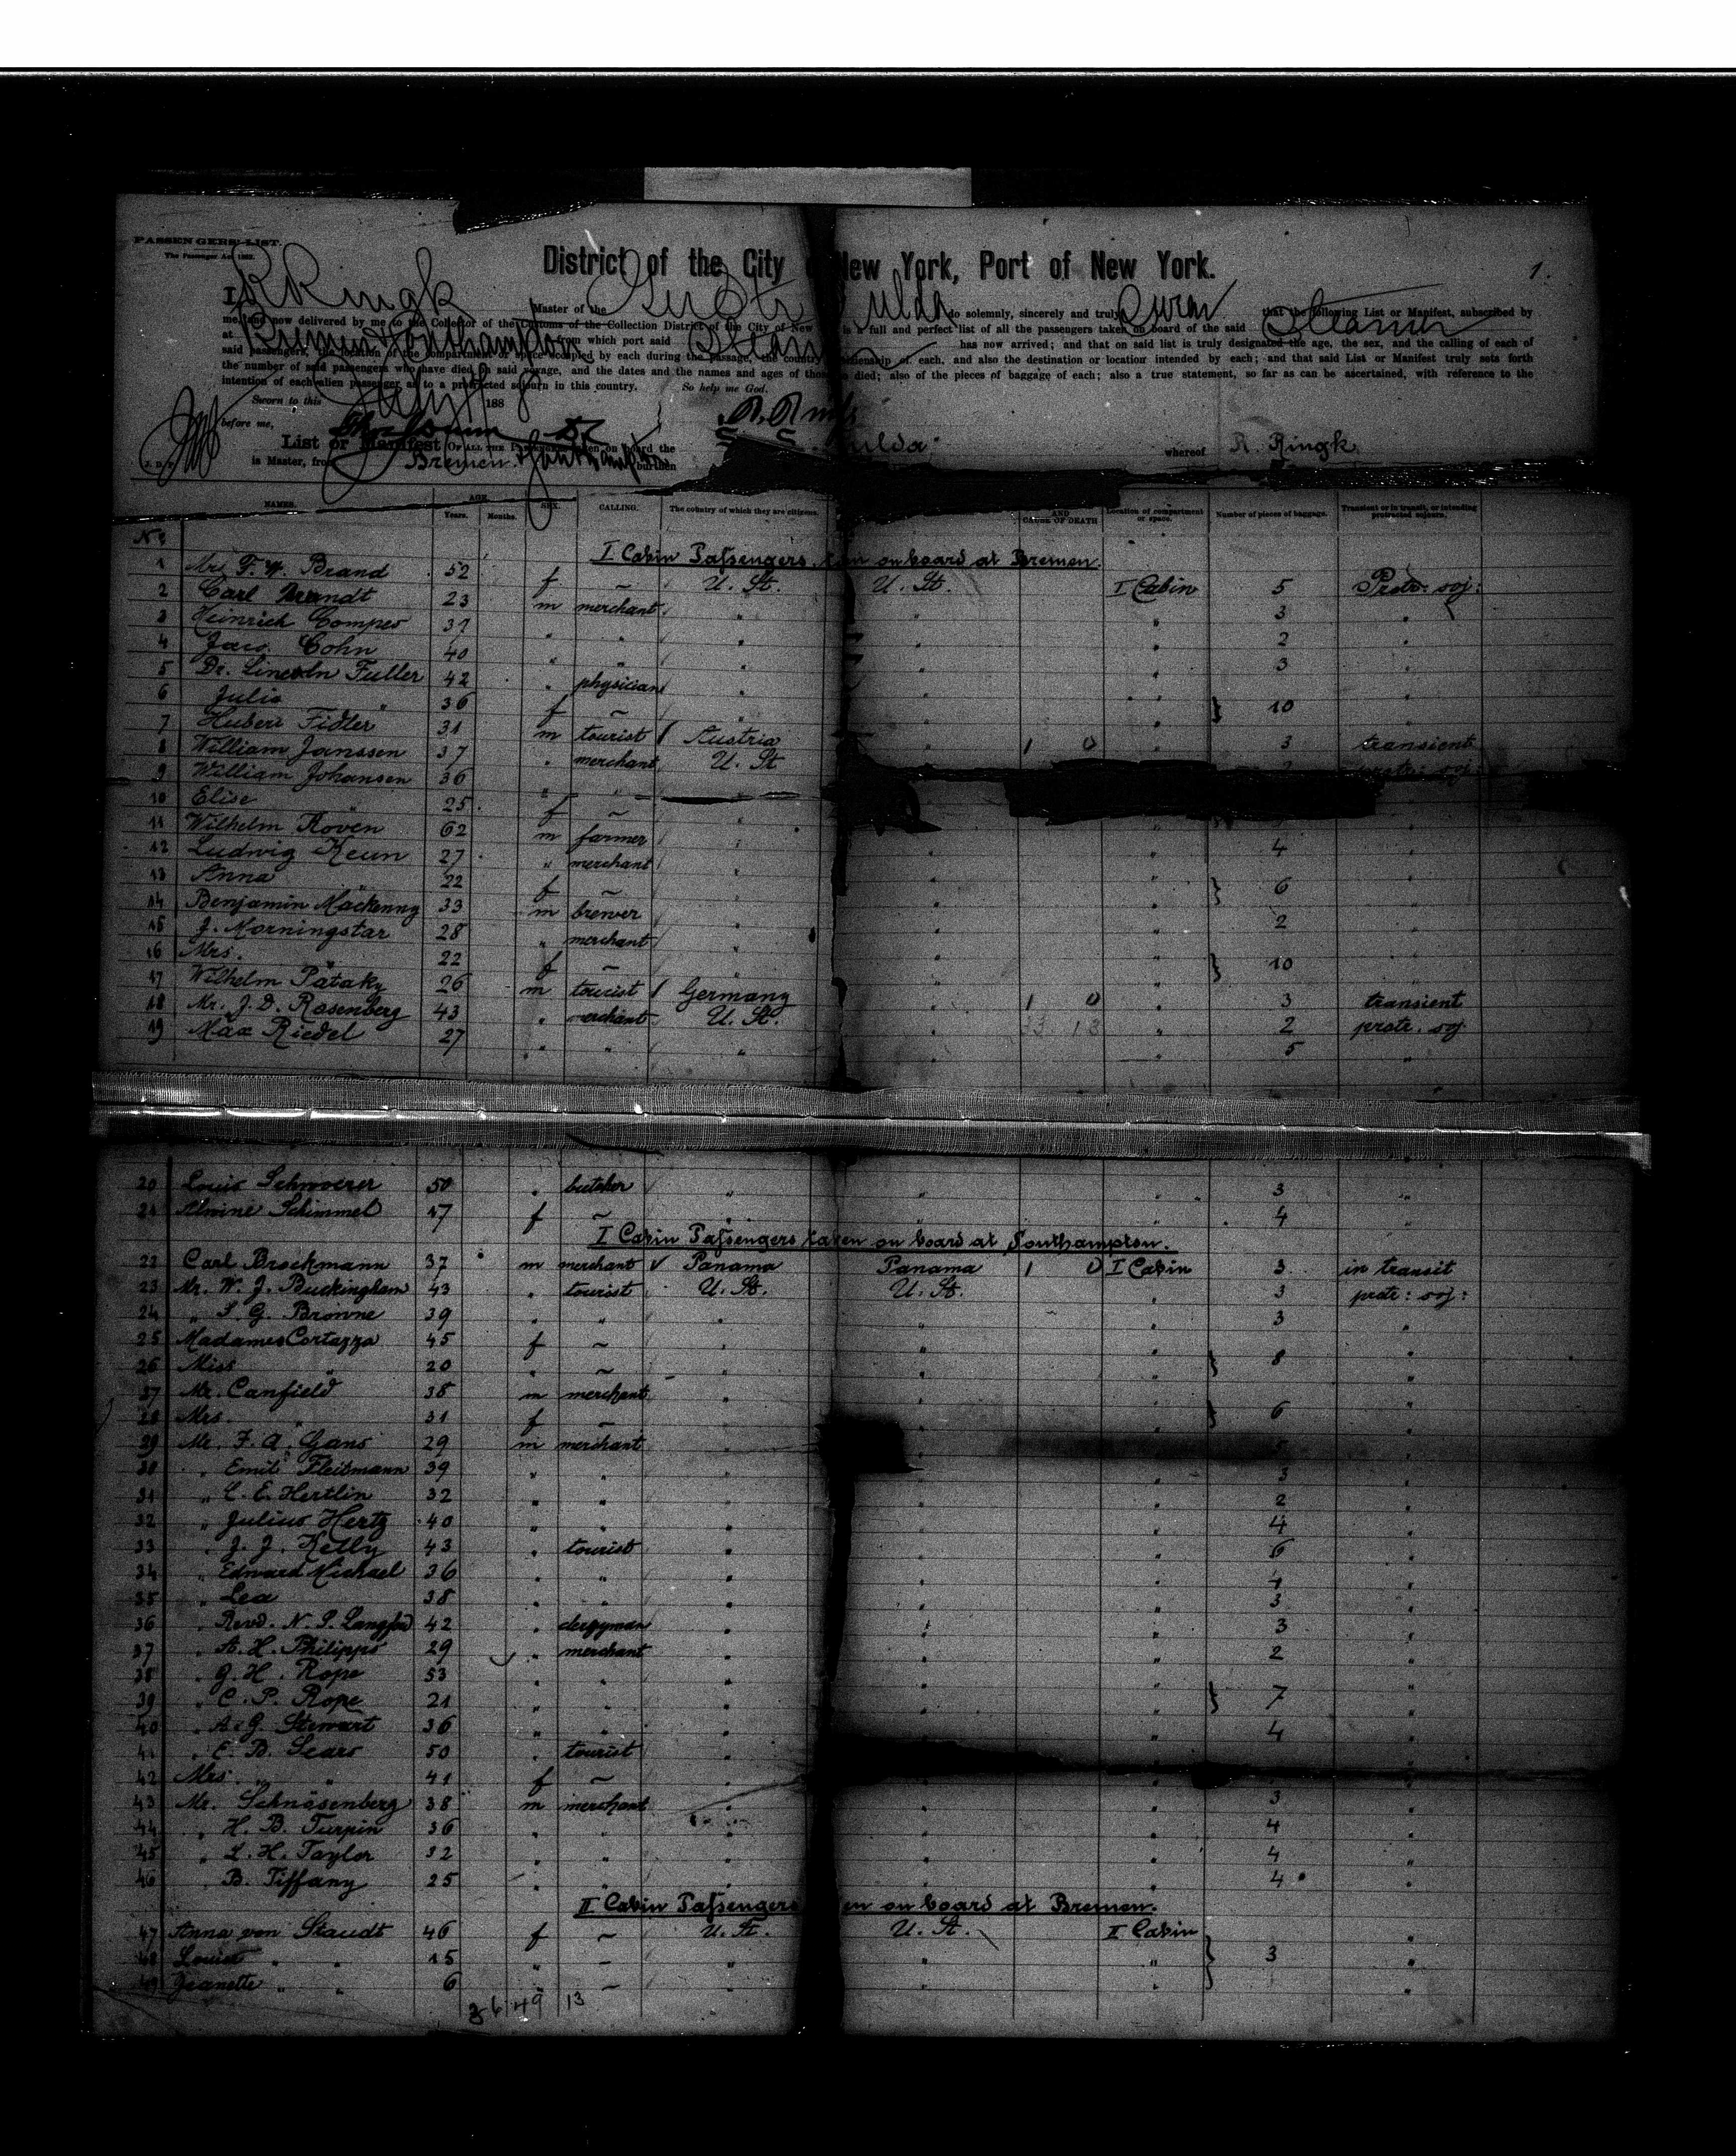 PASSENGERS' LIST.
The Passenger Act 1882.
District of the City New York, Port of New York.
1.
I, R Ringk Master of the do solemnly, sincerely and truly Swear that the following List or Manifest, subscribed by
me, and now delivered by me to the Collector of the Customs of the Collection District of the City of New is a full and perfect list of all the passengers taken on board of the said Steamer
at Bremen Southampton from which port said Steamer has now arrived; and that on said list is truly designated the age, the sex, and the calling of each of
said passengers, the location of the compartment or space occupied by each during the passage, the country of citizenship of each, and also the destination or location intended by each; and that said List or Manifest truly sets forth
the number of said passengers who have died on said voyage, and the dates and the names and ages of those who died; also of the pieces of baggage of each; also a true statement, so far as can be ascertained, with reference to the
intention of each alien passenger as to a protracted sojourn in this country. So help me God.
Sworn to this July 188
before me,
List or Manifest OF ALL THE PASSENGERS taken on board the S. S. Fulda whereof R. Ringk
is Master, from Bremen Southampton burthen
NAMES. AGE. Years. Months. SEX. CALLING. The country of which they are citizens. AND CAUSE OF DEATH Location of compartment or space. Number of pieces of baggage. Transient or in transit, or intending protracted sojourn.
No
I Cabin Passengers taken on board at Bremen.
1 F. W. Brand 52 f ~ U. St. U. St. I Cabin 5 Protr. soj:
2 Carl Brandt 23 m merchant " " 3 "
3 Heinrich Compes 37 " " " " 2 "
4 Jaco. Cohn 40 " " " " 3 "
5 Dr. Lincoln Fuller 42 " physician " "
6 Julia " 36 f ~ " " } 10 "
7 Hubert Fidler 31 m tourist Austria " 1 0 " 3 transient
8 William Janssen 37 " merchant U. St 2 protr: soj:
9 William Johansen 36 " "
10 Elise " 25 f ~ "
11 Wilhelm Roven 62 m farmer " " " 4 "
12 Ludwig Keun 27 " merchant " " "
13 Anna " 22 f ~ " " " } 6 "
14 Benjamin Mackenny 33 m brewer " " " 2 "
15 J. Morningstar 28 " merchant " " "
16 Mrs. " 22 f ~ " " " } 10 "
17 Wilhelm Pataky 26 m tourist Germany " 1 0 " 3 transient
18 Mr. J. D. Rosenberg 43 " merchant U. St. " " 2 protr. soj.
19 Max Riedel 27 " " " " " 5 "
20 Louis Schwoerer 50 " butcher " " " 3 "
21 Alwine Schimmel 17 f ~ " " " 4 "
I Cabin Passengers taken on board at Southampton.
22 Carl Brockmann 37 m merchant Panama Panama 1 0 I Cabin 3 in transit
23 Mr. W. J. Buckingham 43 " tourist U. St. U. St. " 3 protr: soj:
24 " S. G. Browne 39 " " " " " 3 "
25 Madames Cortazzo 45 f ~ " " "
26 Miss " 20 " ~ " " " } 8 "
27 Mr. Canfield 38 m merchant " " "
28 Mrs. " 31 f ~ " " " } 6 "
29 Mr. F. A. Gans 29 m merchant " "
30 " Emil Fleitmann 39 " " " " " 3 "
31 " C. E. Hertlin 32 " " " " " 2 "
32 " Julius Hertz 40 " " " " " 4 "
33 " J. J. Kelly 43 " tourist " " " 6 "
34 " Edward Michael 36 " " " " " 4 "
35 " Lea 38 " " " " " 3 "
36 " Revd. N. S. 42 " clergyman " " " 3 "
37 " A. H. Philipps 29 " merchant " " " 2 "
38 " G. H. Rope 53 " " " " "
39 " C. P. Rope 21 " " " " " } 7 "
40 " A. G. Stewart 36 " " " " " 4 "
41 " E. B. Sears 50 " tourist "
42 Mrs. " " 41 f ~ "
43 Mr. Schnäsenberg 38 m merchant " " " 3 "
44 " H. B. Turpin 36 " " " " " 4 "
45 " L. H. Taylor 32 " " " " " 4 "
46 " B. Tiffany 25 " " " " " 4 "
II Cabin Passengers taken on board at Bremen.
47 Anna von Staudt 46 f ~ U. St. U. St. II Cabin "
48 Louise " " 15 " ~ " " " } 3 "
49 Jeanette " " 6 " ~ " " " "
49 13